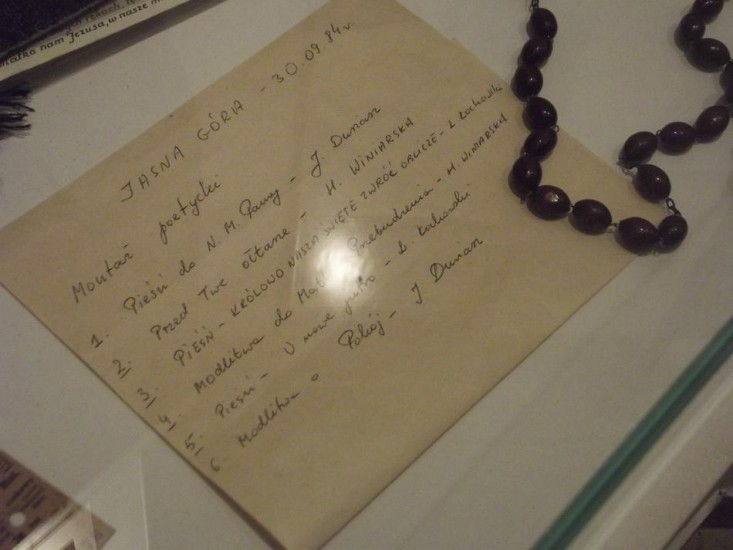 Matko nam Jezusa, w nasze
JASNA GÓRA - 30.09.84 r.
Montaż poetycki
1. Pieśń do N. M. Panny - J. Durian
2. Przed Twe ołtarze - H. WINIARSKA
3. PIEŚŃ - KRÓLOWO NASZA ŚWIĘTE ZWRÓĆ OBLICZE - L. Łakowski
4. Modlitwa do Matki Przebudzenia - H. WINIARSKA
5. Pieśń - U nowe jutro - L. Łakowski
6. Modlitwa o Pokój - J Durian